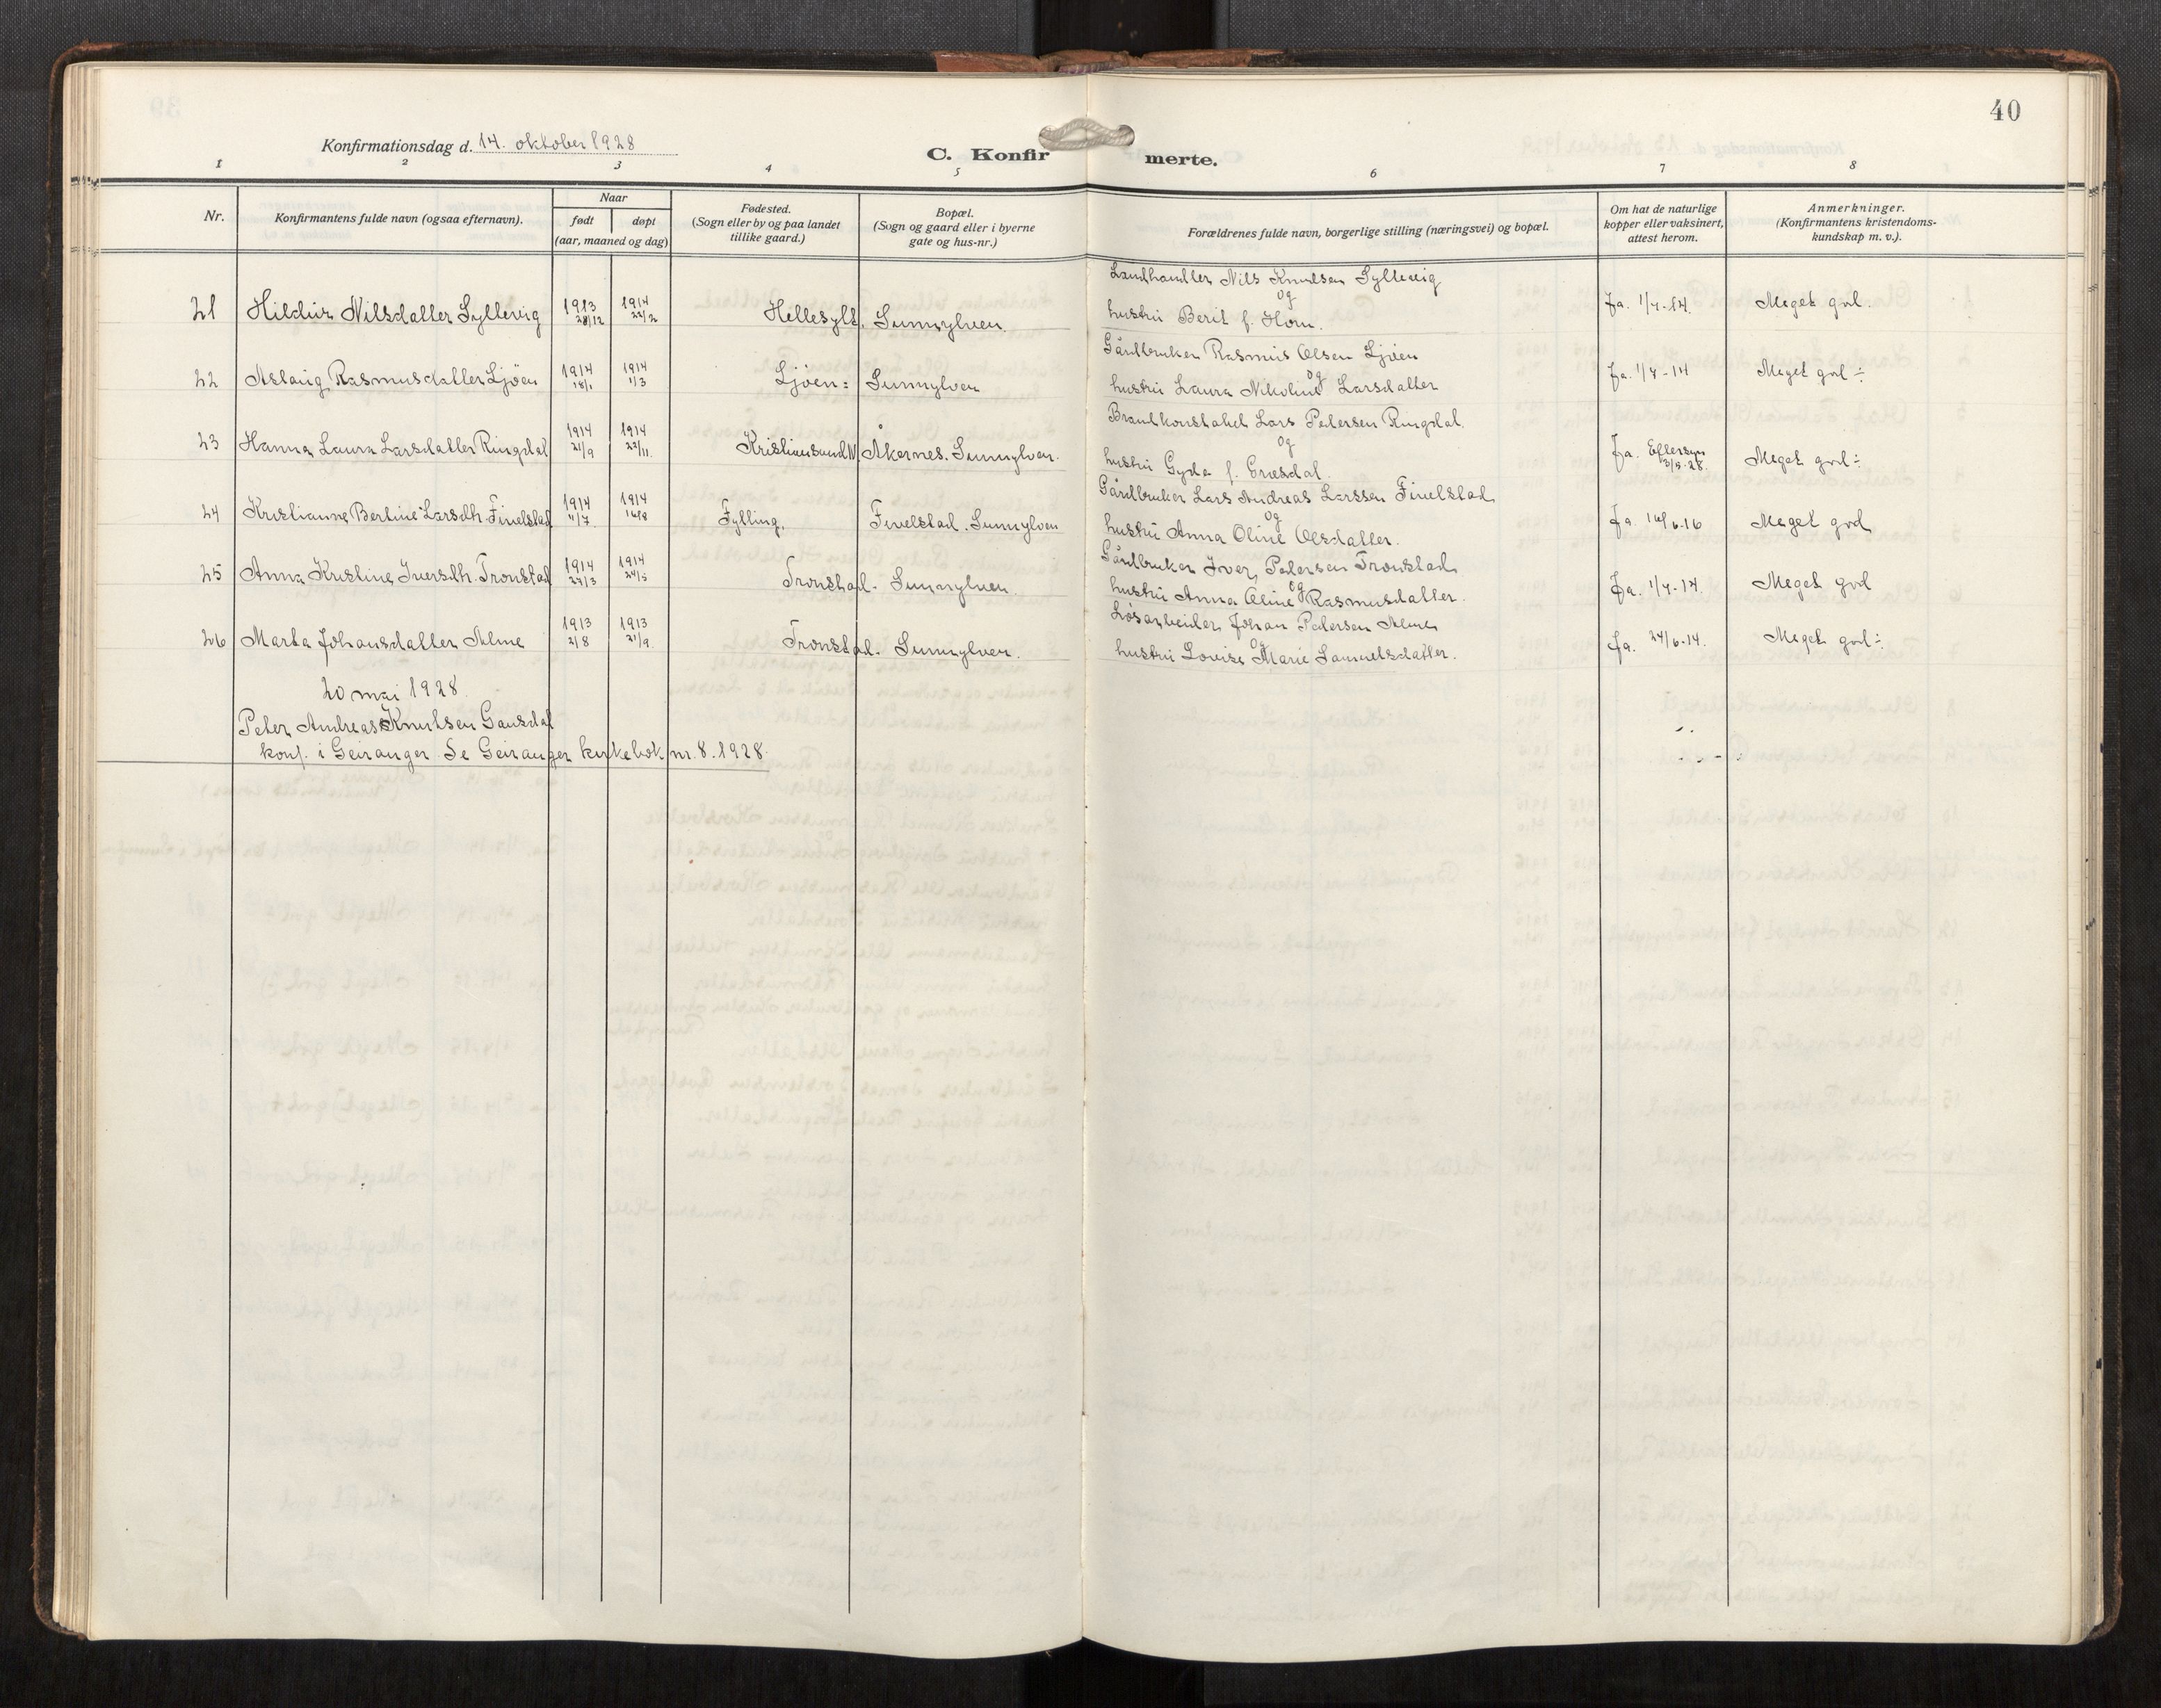 40
Konfirmationsdag d. 14. oktober 1928
C. Konfirmerte.
1 2 3 4 5 6 7 8
Nr.
Konfirmantens fulde navn (ogsaa efternavn).
Naar
født døpt
(aar, maaned og dag)
Fødested.
(Sogn eller by og paa landet
tillike gaard.)
Bopæl.
(Sogn og gaard eller i byerne
gate og hus-nr.)
Forældrenes fulde navn, borgerlige stilling (næringsvei) og bopæl.
Om hat de naturlige
kopper eller vaksinert,
attest herom.
Anmerkninger.
(Konfirmantens kristendoms-
kundskap m. v.).
Landhandler Nils Knutsen Syltevig
og
21 Hildur Nilsdatter Syltevig 1913 28/12 1914 22/2 Hellesylt, Sunnylven. hustru Berit f. Horn. Ja. 1/7-14. Meget god.
Gårdbruker Rasmus Olsen Ljöen
og
22 Aslaug Rasmusdatter Ljöen 1914 18/1 1914 1/3 Ljöen: Sunnylven hustru Laura Nikoline Larsdatter Ja. 1/7-14 Meget god ÷
Brandkonstabel Lars Pedersen Ringdal.
og
23 Hanna Laura Larsdatter Ringdal 1914 21/9 1914 22/11. Kristiansund N. Åkernes. Sunnylven. hustru Gyda f. Ja. Eftersyn 3/5-28. Meget god ÷
Gårdbruker Lars Andreas Larssen Fivelstad
og
24 Kristianne Bertine Larsdtr. Fivelstad 1914 11/7 1914 16/8 Fylling. Fivelstad. Sunnylven hustru Anna Oline Olsdatter. Ja. 16/6-16 Meget god
Gårdbruker Iver Pedersen Tronstad
og
25 Anna Kristine Iversdtr. Tronstad 1914 27/3 1914 24/5 Tronstad. Sunnylven. hustru Anna Oline Rasmusdatter. Ja. 1/7-14. Meget god
Løsarbeider Johan Pedersen Alme
og
26 Marta Johansdatter Alme 1913 2/8 1913 21/9. Tronstad. Sunnylven. hustru Lovise Marie Samuelsdatter. Ja. 24/6-14. Meget god ÷
20 mai 1928.
Peter Andreas Knutsen Gausdal
konf. i Geiranger. Se Geiranger kirkebok nr. 8. 1928.